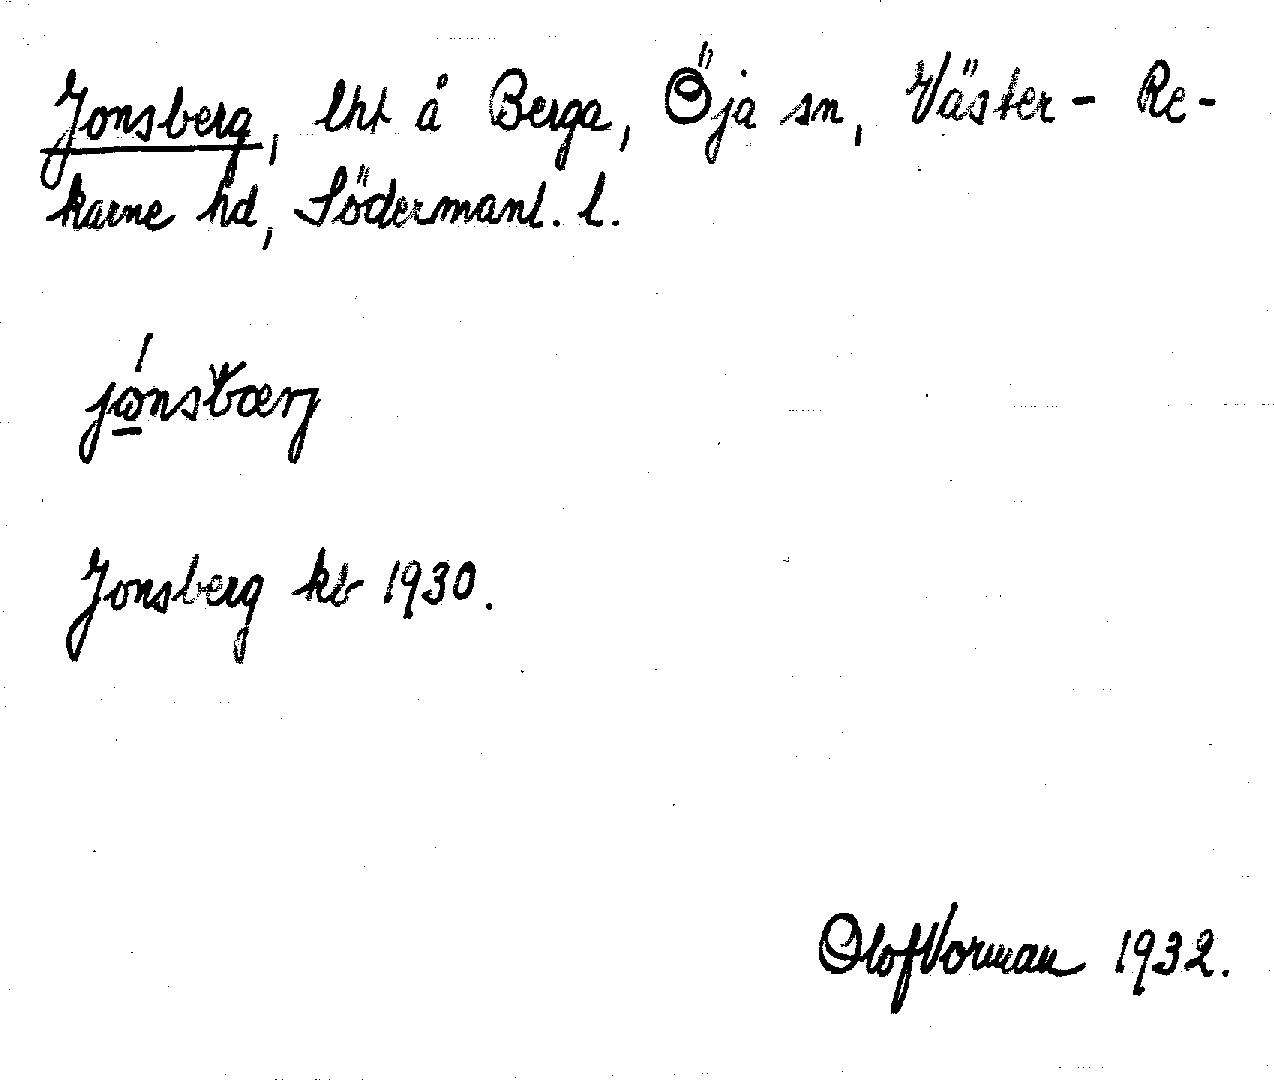 Jonsberg, lht å Berga, Öja sn, Väster-Re-
karne hd, Södermanl. l.
Jonsberg kb 1930.
Olof Vorman 1932.